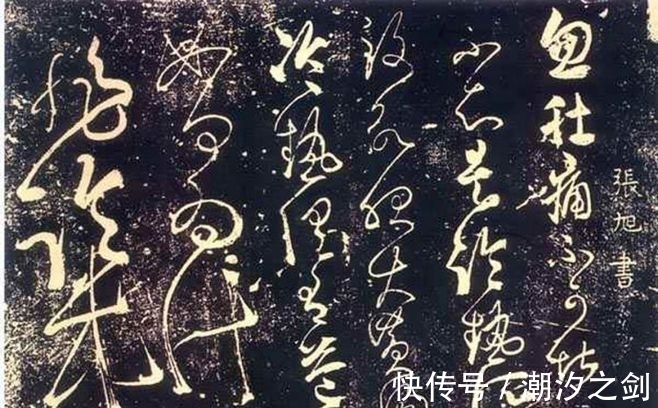 張旭書
忽肚痛不可堪
不知是冷熱所
致欲服大黃湯
冷熱俱有益
如何為計
非臨床
快传号 / 潮汐之剑